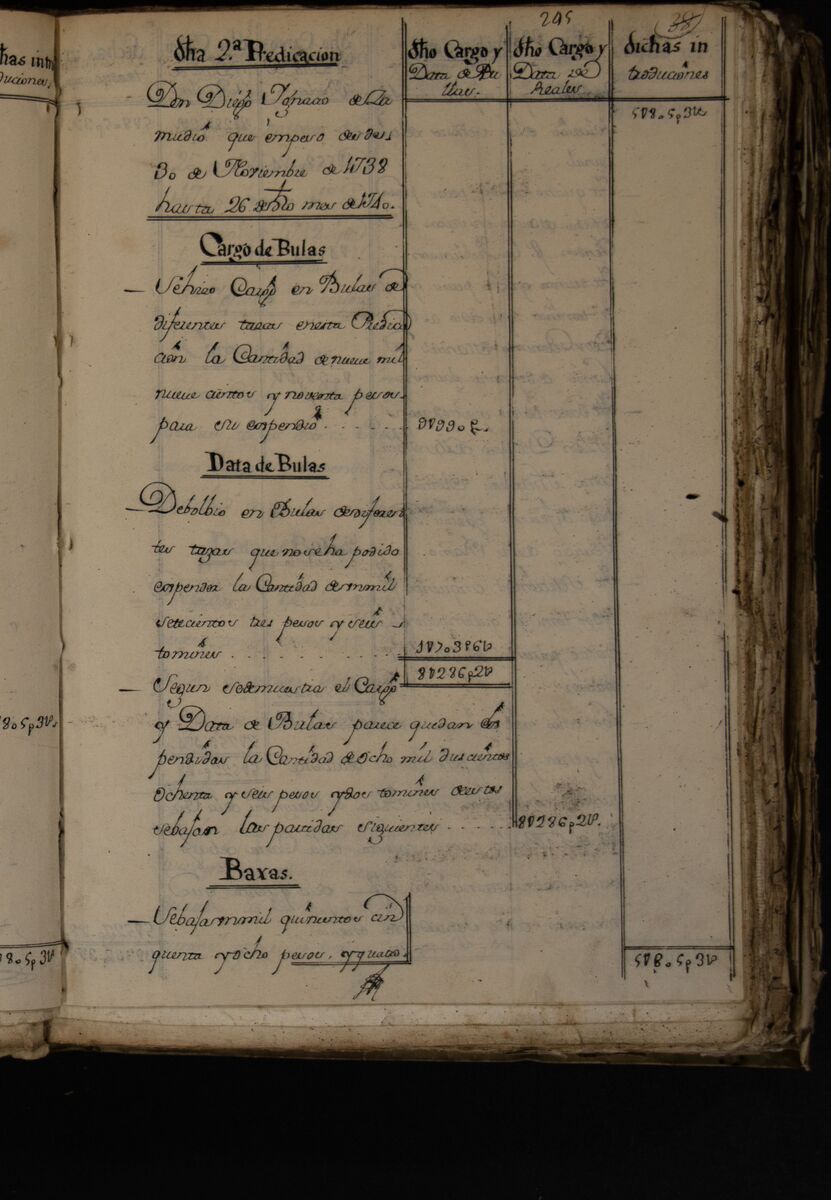 has intro
duciones.
805p3U.
U805p3U
245
38
dħa 2.ª Predicacion
dħo Cargo y
Data de Bu
llas.
dħo Cargo y
Data de
Reales.
dichas in
troduciones
5U805p3U
Don Diego Ignacio de La
mudio que empeso desdes
30 de Noviembre de 1738
hasta 26 de dħo mes de 1740.
Cargo de Bulas
Se hizo Cargo en Bulas de
diferentes tazas en esta Predica
cion la Cantidad de nueve mil
nueve cientos y noventa pesos
para su expendio
9U990p.
Data de Bulas
Debolbio en Bulas de diferen
tes tazas que no se ha podido
expender la Cantidad de un mil
setecientos tres pesos y seis
tomines
1U703p6U
8U286p2U
Segun se demuestra el Cargo
y Data de Bulas parece quedan Ex
pendidas la Cantidad de ocho mil duscientos
ochenta y seis pesos y dos tomines de estos
se bajan las partidas siguientes
8U286p2U.
Baxas.
Se bajan mil quinientos cin
quenta y ocho pesos, y quatro
5U805p3U